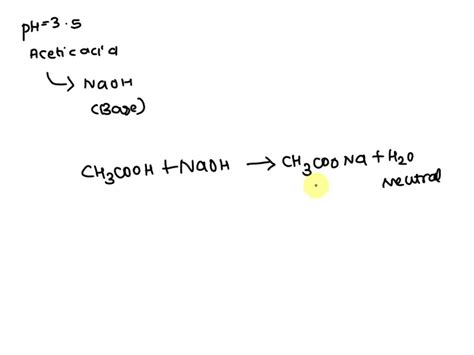 pH=3.5
Acetic acid
NaOH
(Base)
CH₃COOH + NaOH → CH₃COONa + H₂O
Neutral